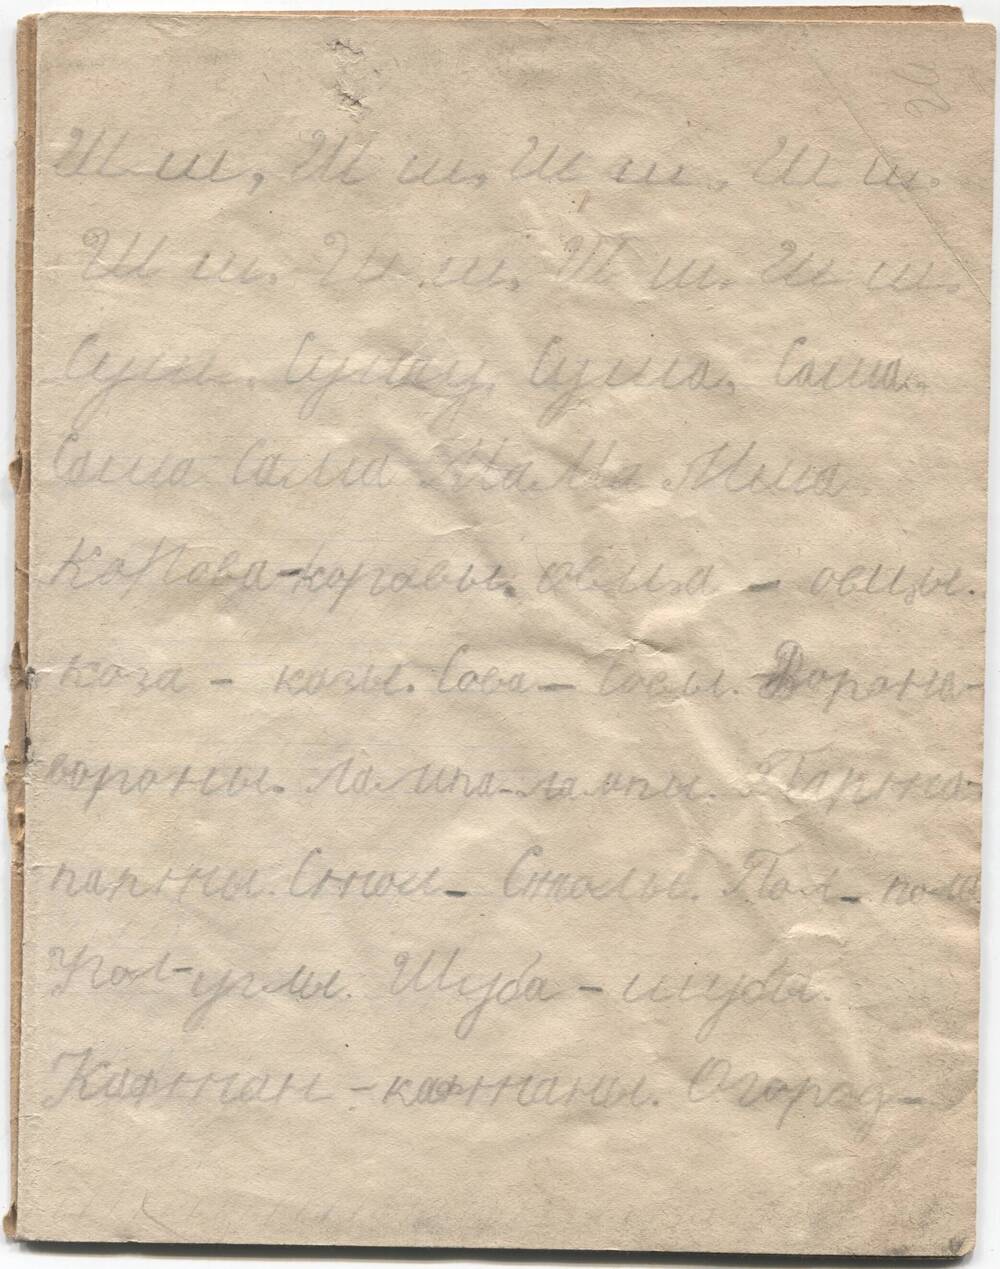 Ш ш, Ш ш, Ш ш, Ш ш.
Ш ш. Ш ш, Ш ш. Ш ш.
Суши. Сушу, Суша, Саша.
Саша Сама Маша Миша
Корова-коровы. овца - овцы.
коза - козы. Сова - Совы. Ворона-
вороны. лампа-лампы. Парта
парты. Стол - Столы. Пол - полы
Угол-углы. Шуба - шубы.
Кафтан - кафтаны. Огород -